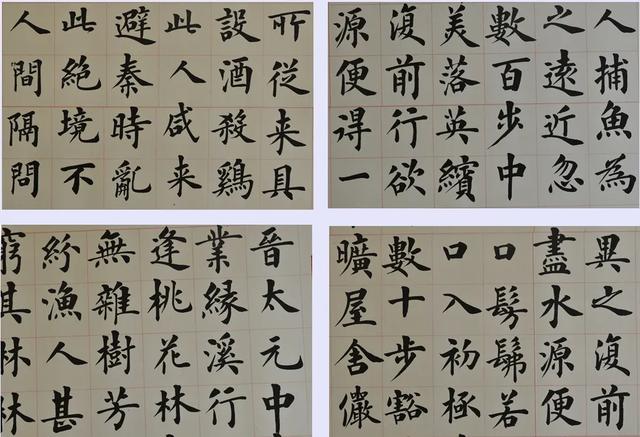 所從来具
設酒殺鷄
此人咸来
避秦時亂
此絕境不
人間隔問
人捕魚為
之遠近忽
數百步中
美落英繽
復前行欲
源便得一
晉太元中
業緣溪行
逢桃花林
無雜樹芳
紛漁人甚
窮其林林
異之復前
盡水源便
口髣髴若
口入初極
數十步豁
曠屋舍儼